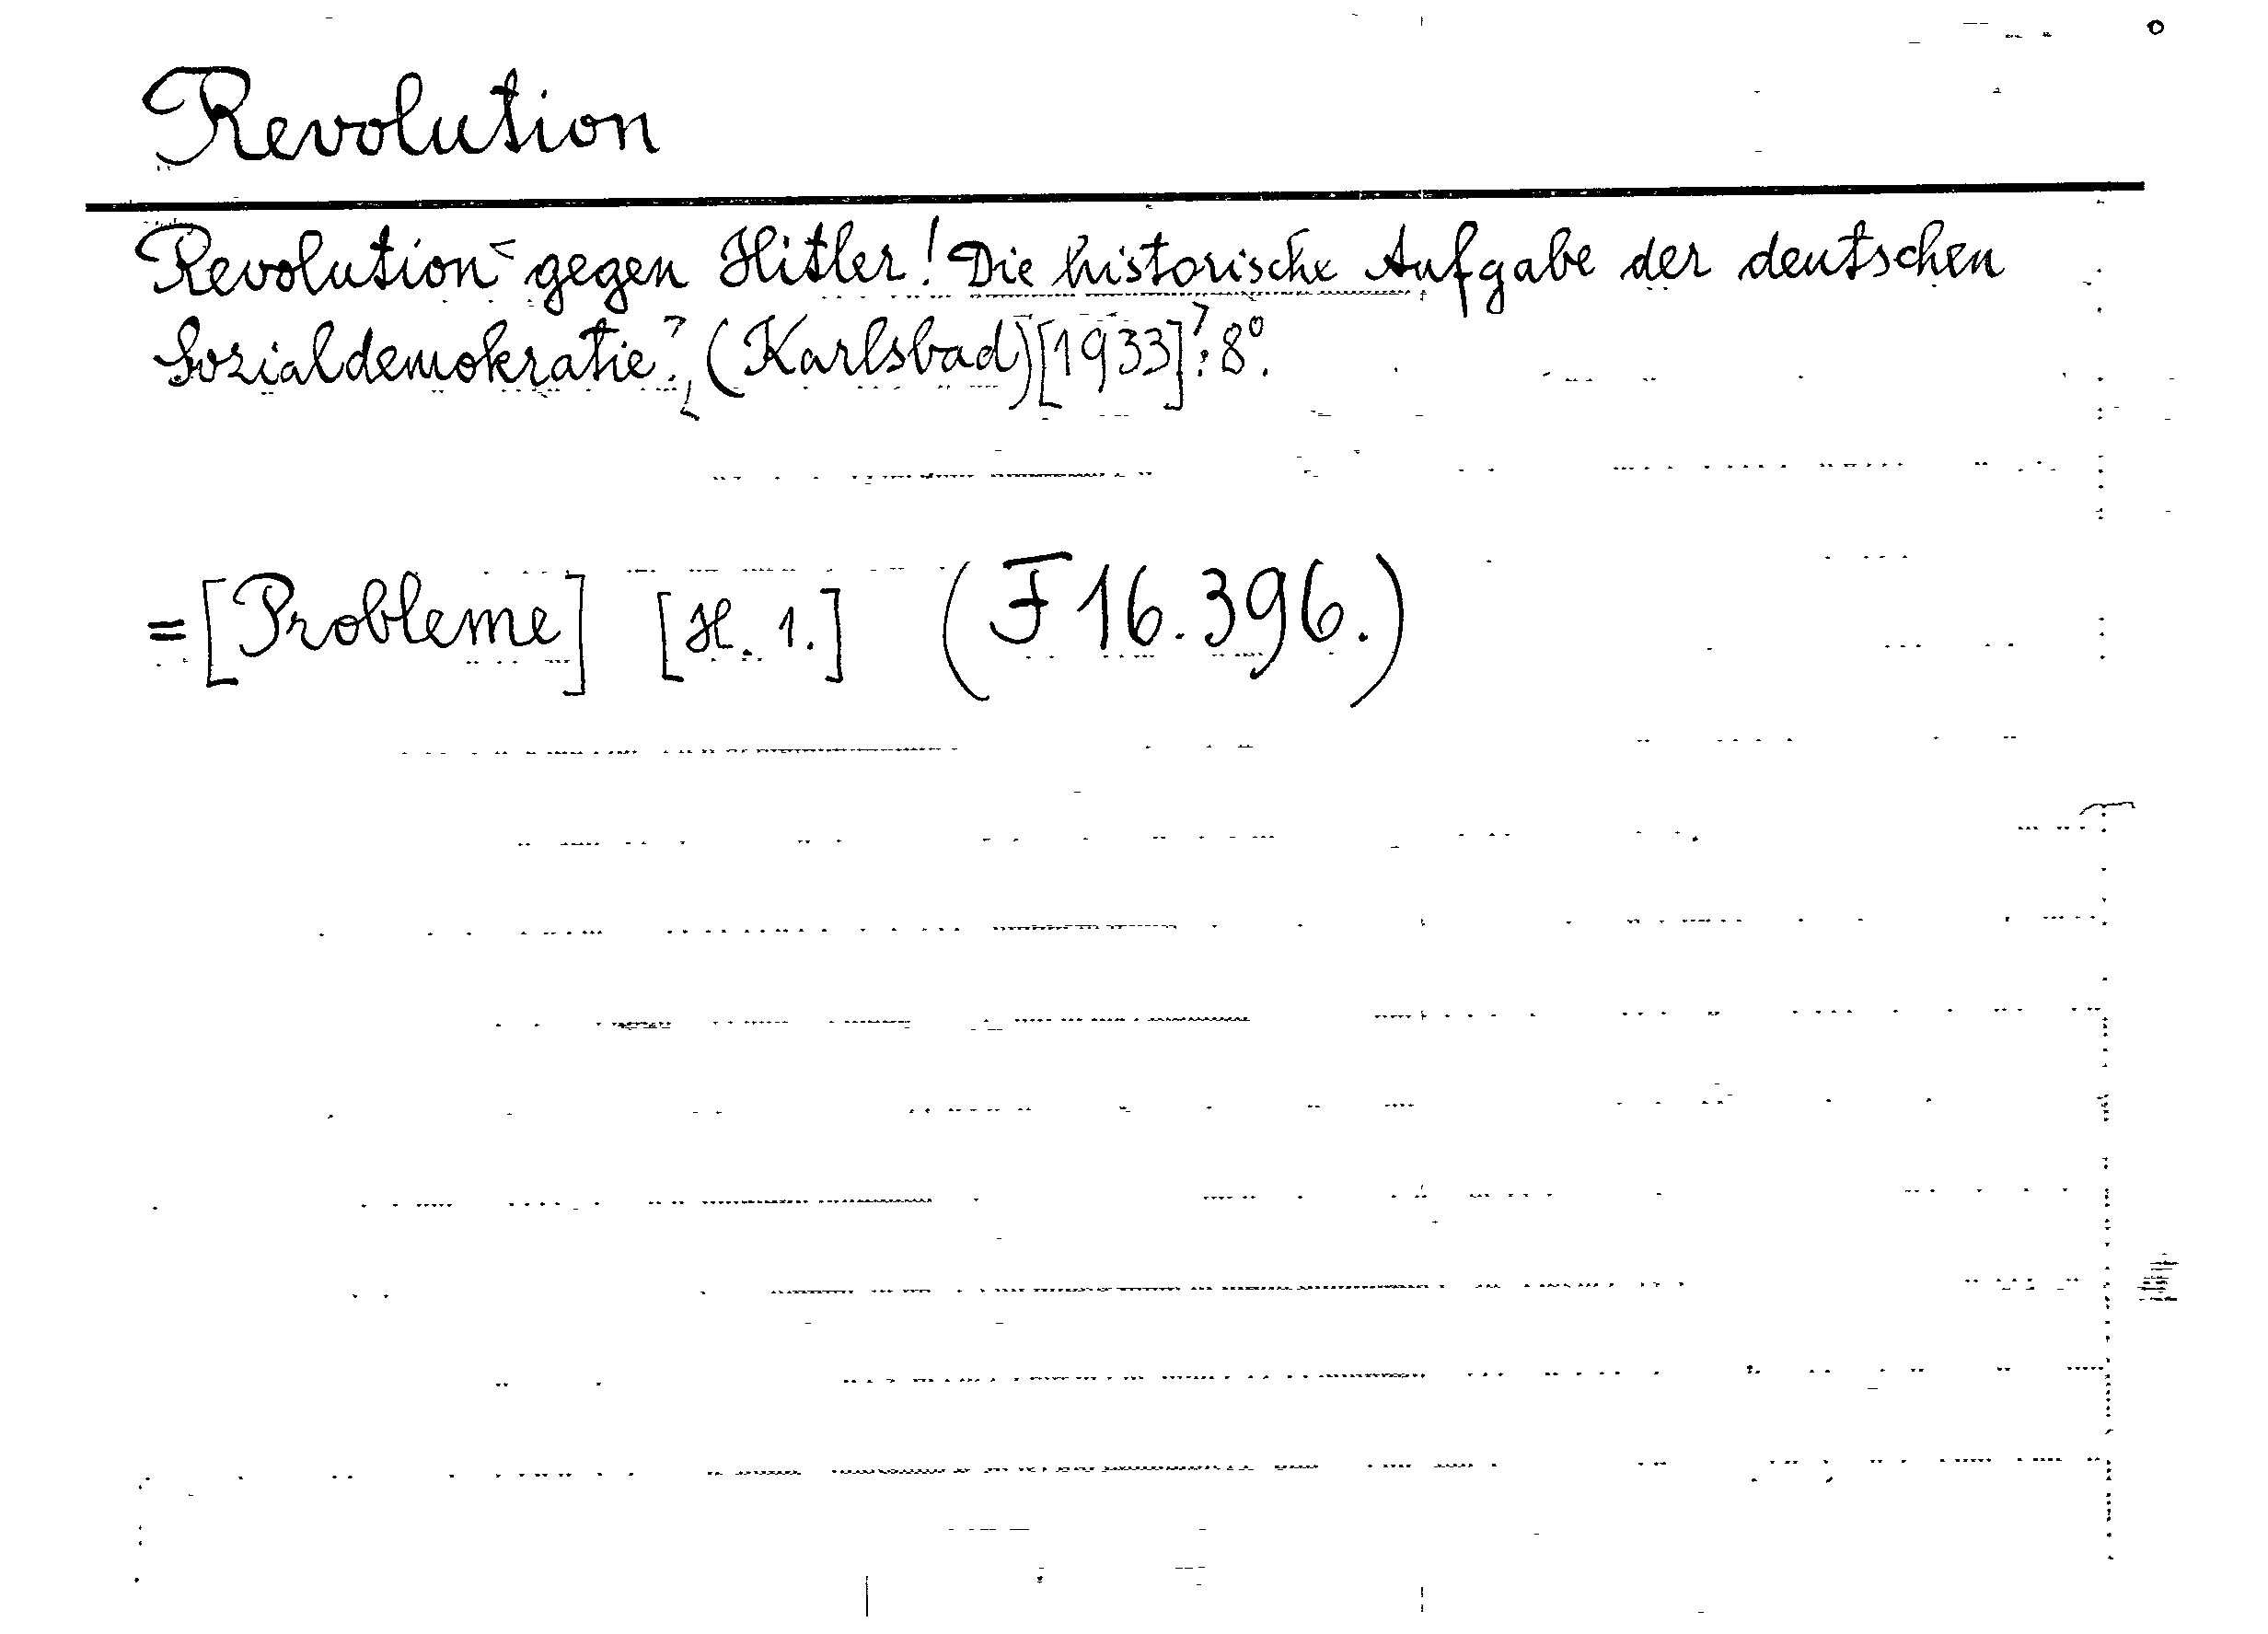 Revolution
Revolution gegen Hitler! Die historische Aufgabe der deutschen
Sozialdemokratie. (Karlsbad) [1933]: 8°.
= [Probleme] [H. 1.] (F 16.396.)